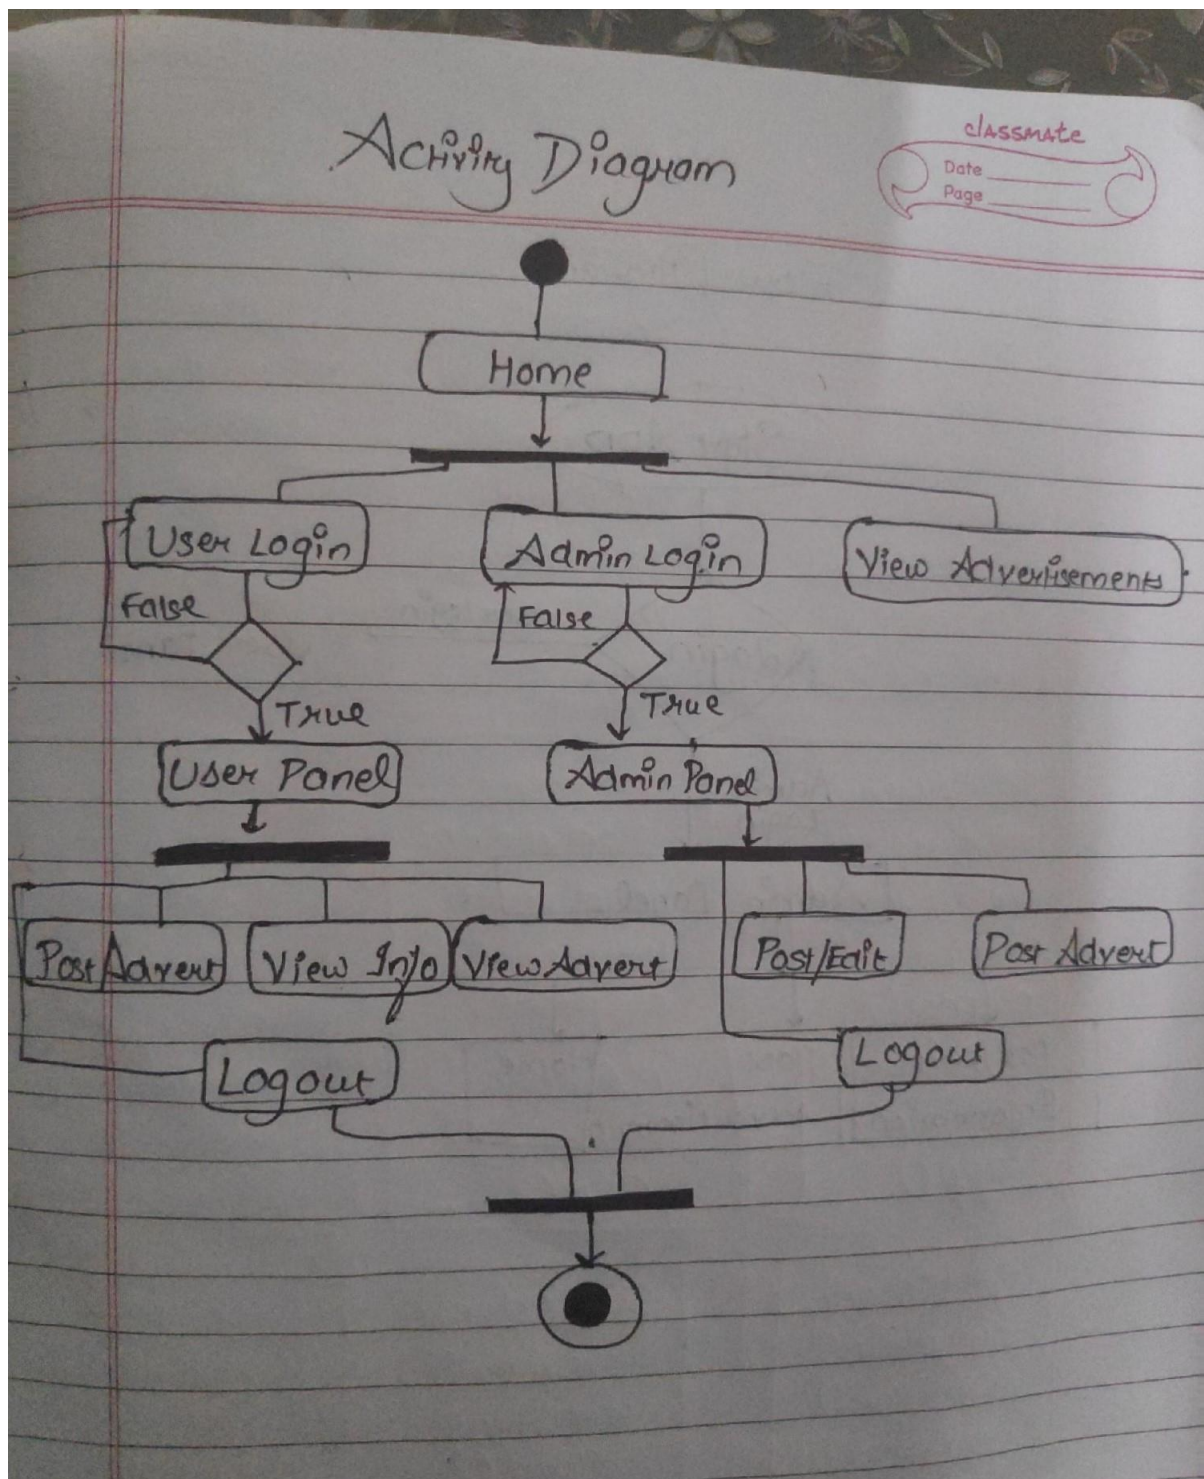 Activity Diagram
classmate
Date
Page
Home
User Login
Admin Login
View Advertisements
False
False
True
True
User Panel
Admin Panel
Post Advert
View Info
View Advert
Post/Edit
Post Advert
Logout
Logout